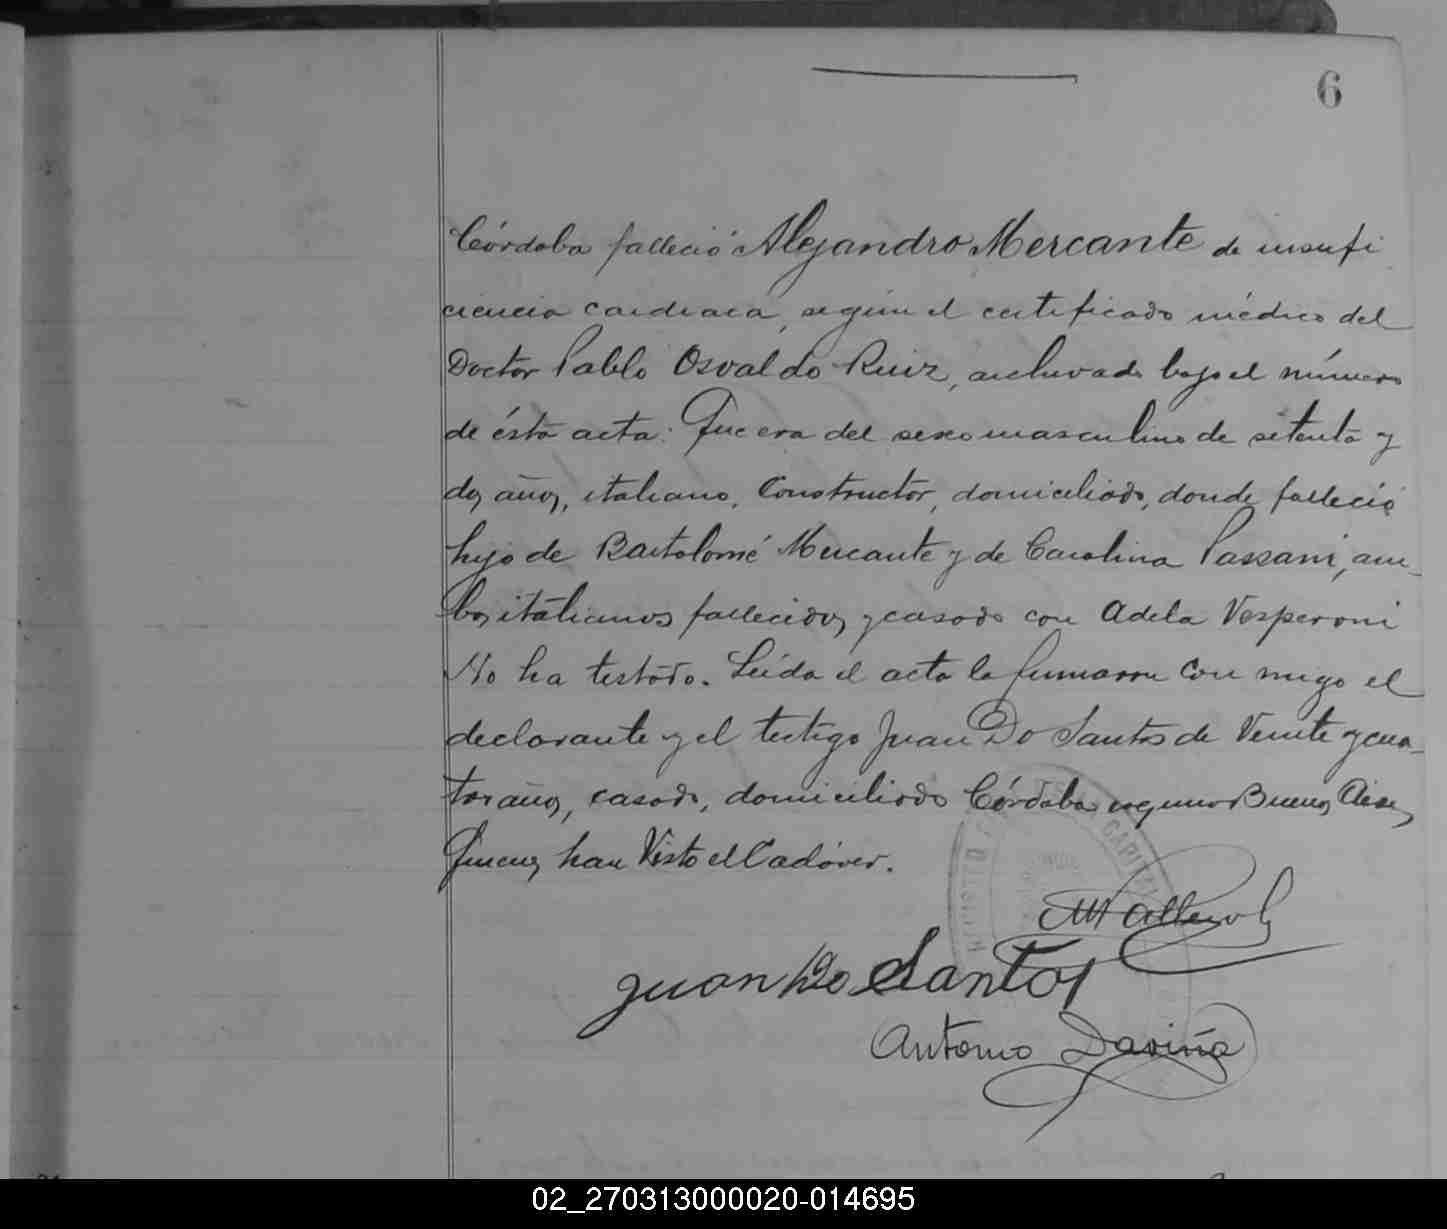 6
Córdoba falleció Alejandro Mercante de insufi
ciencia cardiaca, según el certificado médico del
Doctor Pablo Osvaldo Ruiz, archivado bajo el número
de ésta acta. Que era del sexo masculino de setenta y
dos años, italiano, Constructor, domiciliado, donde falleció
hijo de Bartolomé Mercante y de Carolina Passani, am-
bos italianos fallecidos y casado con Adela Vesperoni
No ha testado. Leída el acta la firmaron con migo el
declarante y el testigo Juan Do Santos de Veinte y cua-
tro años, casado, domiciliado Córdoba esquina Buenos Aires
Quienes han Visto el Cadáver.
Juan Do Santos
Antonio Daviña
REGISTRO CAPITAL
02_270313000020-014695